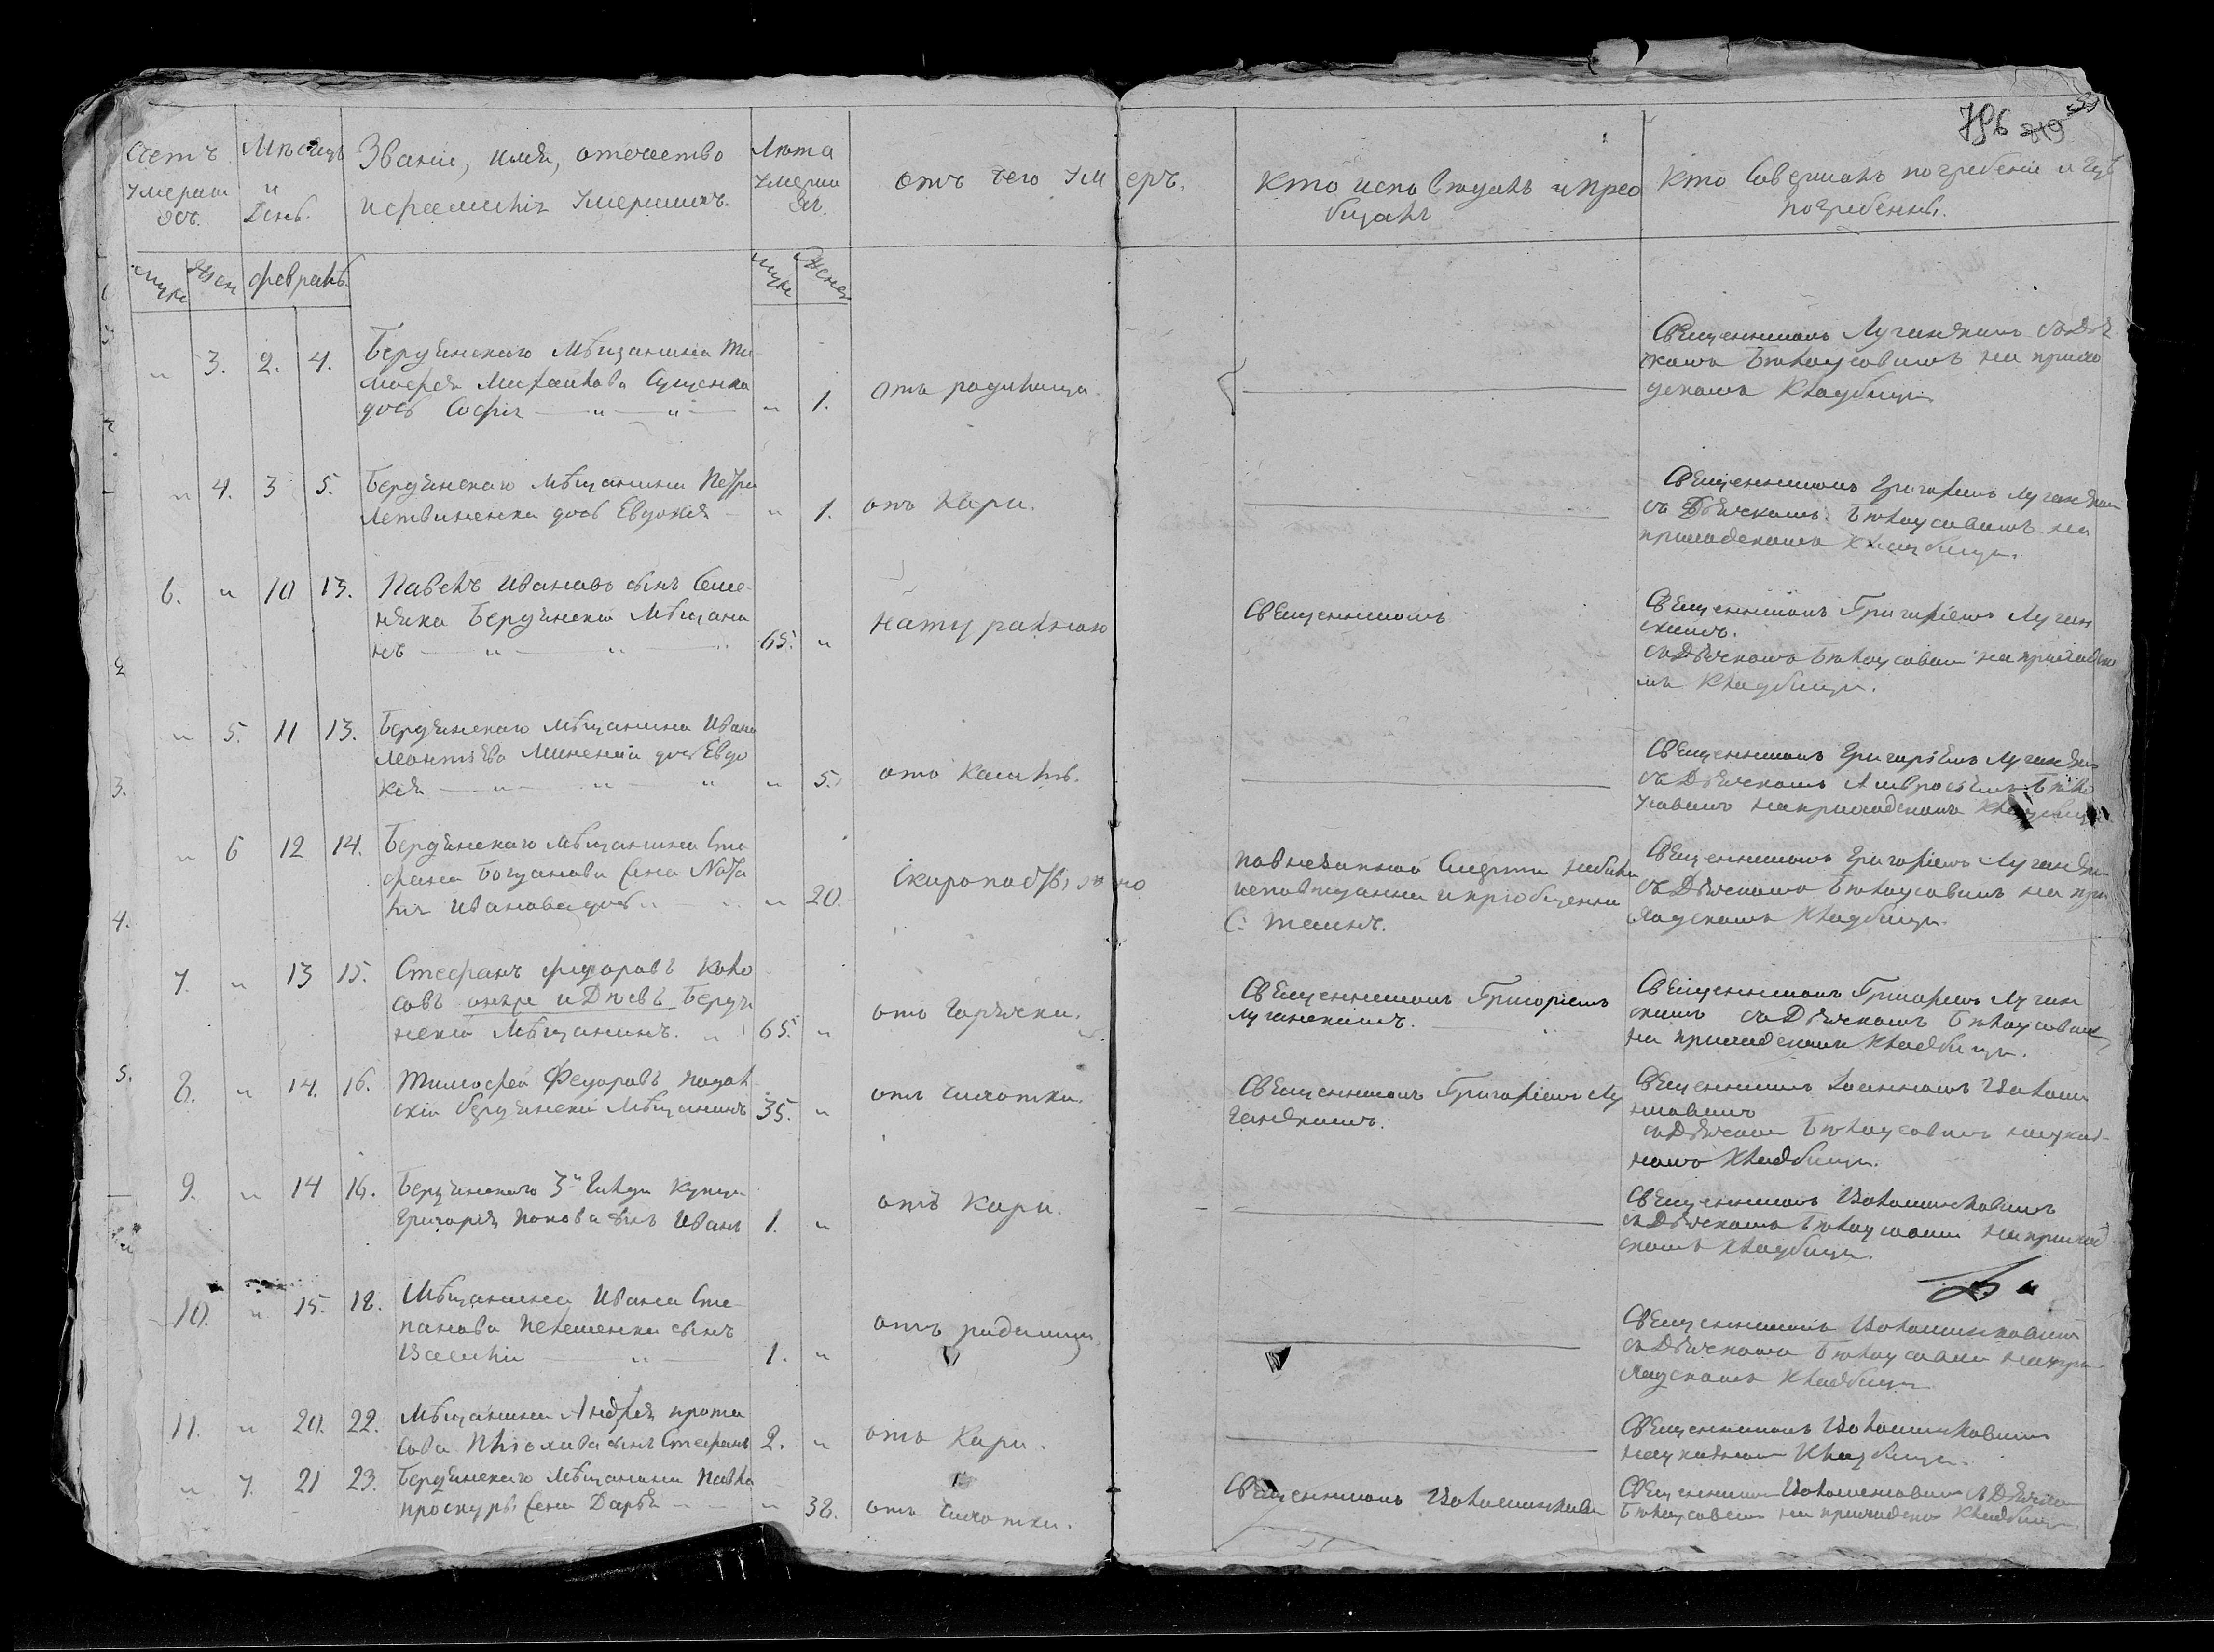 796
Счетъ умершихъ.
Мѣсяцъ и день.
Званіе, имя, отечество
и фамиліи умершихъ.
Лѣта умершихъ.
отъ чего умеръ.
Кто исповѣдалъ и прео
бщалъ
Кто совершалъ погребеніе и гдѣ
погребенны.
муже жен февраль. муже женс
" 3. 2. 4.
Бердянскаго мѣщанина Ти
мофея Михайлова Сущенка
дочь Софія — " — " —
" 1.
отъ родимца.
Священникомъ Луганскимъ съ дья
чкомъ Бѣлоусовимъ на прихо
дскомъ кладбищи
" 4. 3 5.
Бердянскаго мѣщанина Петра
Летвиненка дочь Евдокія
" 1.
отъ кори.
Священникомъ Григоріемъ Луганским
съ дьячкомъ Бѣлоусовимъ на
приходскомъ кладбищи.
6. " 10 13.
Павелъ Ивановъ сынъ Семе-
няка Бердянскій мѣщани
нъ — " — " — "
65. "
натуральною
Священникомъ
Священникомъ Григоріемъ Луган
скимъ.
съ дьячкомъ Бѣлоусовим на приходско
мъ кладбищи.
" 5. 11 13.
Бердянскаго мѣщанина Ивана
Леонтьева дочь Евдо
кія — " — " — "
" 5.
отъ кашлѣ.
Священникомъ Григоріемъ Лугански
съ дьячкомъ Амвросіемъ Бѣло
усовимъ на приходскомъ кладбищи
" 6 12 14.
Бердянскаго мѣщанина Сте
фана Богданова жена Ната
лія Иванова дочь " — "
" 20.
Скоропостижно
по внезапной смерти небыла
исповѣданна и пріобщенна
С: Таинъ.
Священникомъ Григоріемъ Лугански
съ дьячкомъ Бѣлоусовимъ на при
ходскомъ кладбищи.
7. " 13 15.
Стефанъ Федоровъ Коло
совъ онъже и Дѣевъ Бердя
нскій мѣщанинъ. "
65. "
отъ горячки.
Священникомъ Григоріемъ
Луганскимъ. "
Священникомъ Григоріемъ Луган
скимъ съ дьячкомъ Бѣлоусовим
на приходскомъ кладбищи.
8. " 14. 16.
Тимофей Федоровъ Подол
скій бердянскій мѣщанинъ
35. "
отъ сухотки.
Священникомъ Григоріемъ Лу
ганскимъ.
Священникомъ Іоанномъ
съ дьячком Бѣлоусовимъ
кладбищи.
9. " 14 16.
Бердянскаго 3й гилди купца
Григорія Попова сынъ Иванъ
1. "
отъ кори.
Священникомъ
съ дьячкомъ Бѣлоусовим на приход
скомъ кладбищи
10. " 15. 18.
Мѣщанина Ивана Сте-
панова Пелешенка сынъ
Василій — " —
1. "
отъ родимца
Священникомъ
съ дьячкомъ Бѣлоусовим на при-
ходскомъ кладбищи
11. " 20. 22.
Мѣщанина Андрея Прота
сова сынъ Стефанъ
2. "
отъ кори.
Священникомъ
кладбищи.
" 7. 21 23.
Бердянскаго мѣщанина Павла
Проскуры жена Дарья " —
" 38.
отъ сухотки.
Священникомъ
Священником съ дьячком
Бѣлоусовим на приходско кладбищи